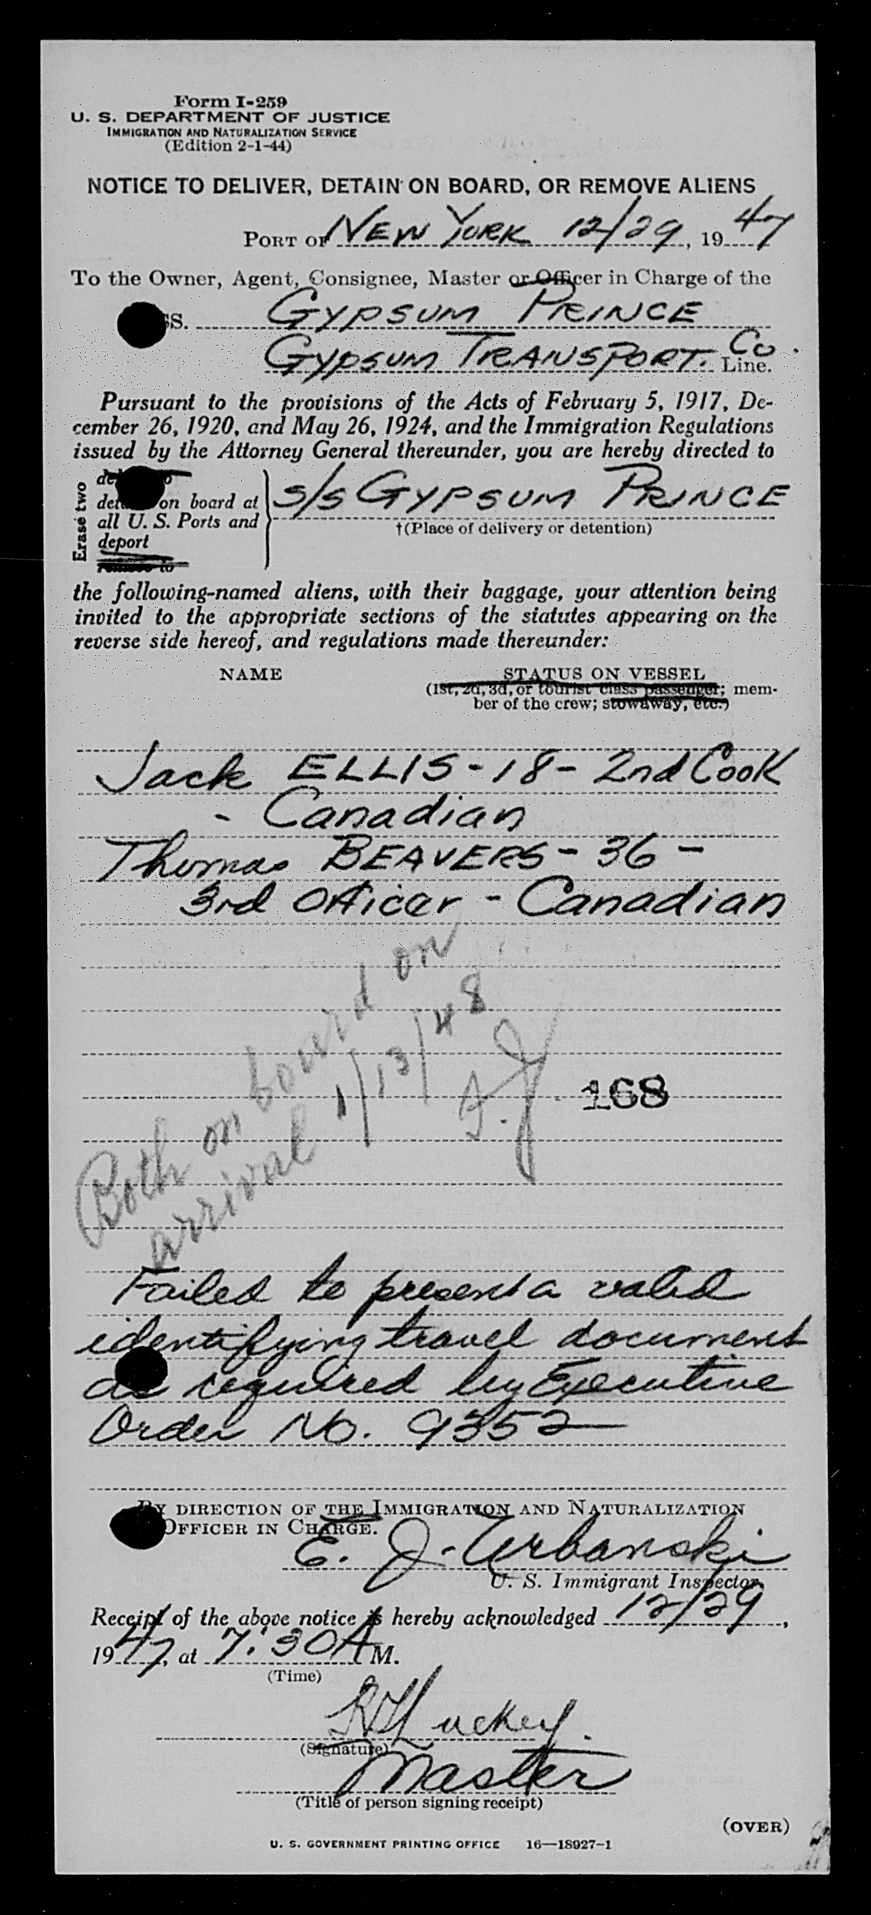 Form I-259
U. S. DEPARTMENT OF JUSTICE
IMMIGRATION AND NATURALIZATION SERVICE
(Edition 2-1-44)
NOTICE TO DELIVER, DETAIN ON BOARD, OR REMOVE ALIENS
PORT OF NEW YORK 12/29, 1947
To the Owner, Agent, Consignee, Master or Officer in Charge of the
SS. GYPSUM PRINCE
GYPSUM TRANSPORT. Co. Line.
Pursuant to the provisions of the Acts of February 5, 1917, De-
cember 26, 1920, and May 26, 1924, and the Immigration Regulations
issued by the Attorney General thereunder, you are hereby directed to
Erase two
on board at
all U. S. Ports and
deport
remove to
S/S GYPSUM PRINCE
†(Place of delivery or detention)
the following-named aliens, with their baggage, your attention being
invited to the appropriate sections of the statutes appearing on the
reverse side hereof, and regulations made thereunder:
NAME STATUS ON VESSEL
(1st, 2d, 3d, or tourist class passenger; mem-
ber of the crew; stowaway, etc.)
Jack ELLIS - 18 - 2nd Cook
- Canadian
Thomas BEAVERS - 36 -
3rd Officer - Canadian
Both on board on
arrival 1/13/48
F.J.
168
Failed to present a valid
identifying travel document
as required by Executive
Order No. 9352
BY DIRECTION OF THE IMMIGRATION AND NATURALIZATION
OFFICER IN CHARGE.
E. J. Urbanski
U. S. Immigrant Inspector.
Receipt of the above notice is hereby acknowledged 12/29,
1947, at 7:30 A M.
(Time)
Luckey
(Signature)
Master
(Title of person signing receipt)
(OVER)
U. S. GOVERNMENT PRINTING OFFICE 16—18927-1